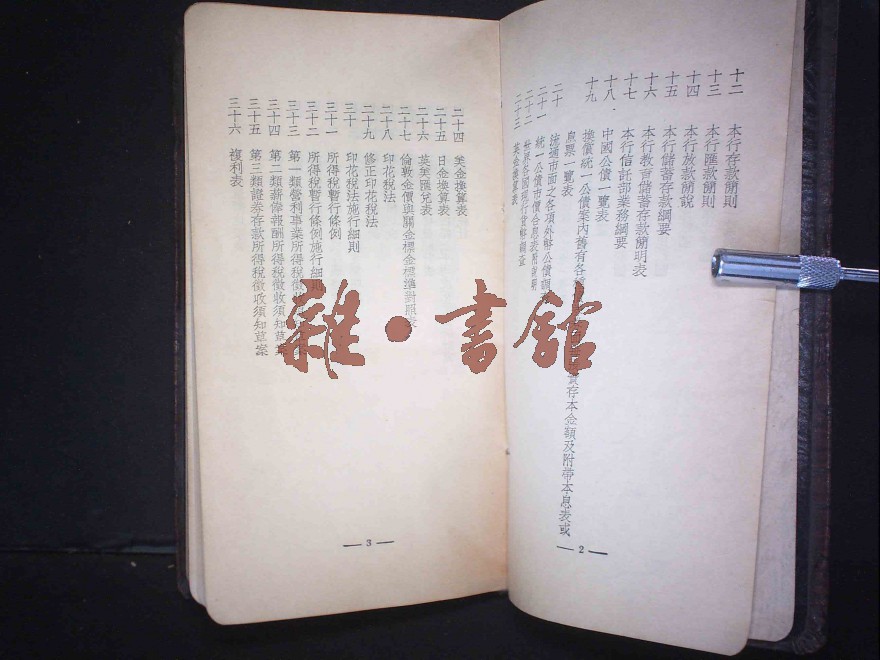 十二 本行存款簡則
十三 本行匯款簡則
十四 本行放款簡說
十五 本行儲蓄存款綱要
十六 本行教育儲蓄存款簡明表
十七 本行信託部業務綱要
十八 中國公債一覽表
十九 換償統一公債案內舊有各 債存本金額及附帶本息表或
息票一覽表
二十 流通市面之各項外幣公債調
二十一 統一公債市價合息表附說明
二十二 世界各國現行貨幣調查
二十三 英金換算表
— 2 —
二十四 美金換算表
二十五 日金換算表
二十六 英美匯兌表
二十七 倫敦金價與關金標金標準對照表
二十八 印花稅法
二十九 修正印花稅法
三十 印花稅法施行細則
三十一 所得稅暫行條例
三十二 所得稅暫行條例施行細則
三十三 第一類營利事業所得稅徵收須知草案
三十四 第二類薪給報酬所得稅徵收須知草案
三十五 第三類證券存款所得稅徵收須知草案
三十六 複利表
— 3 —
雜·書館